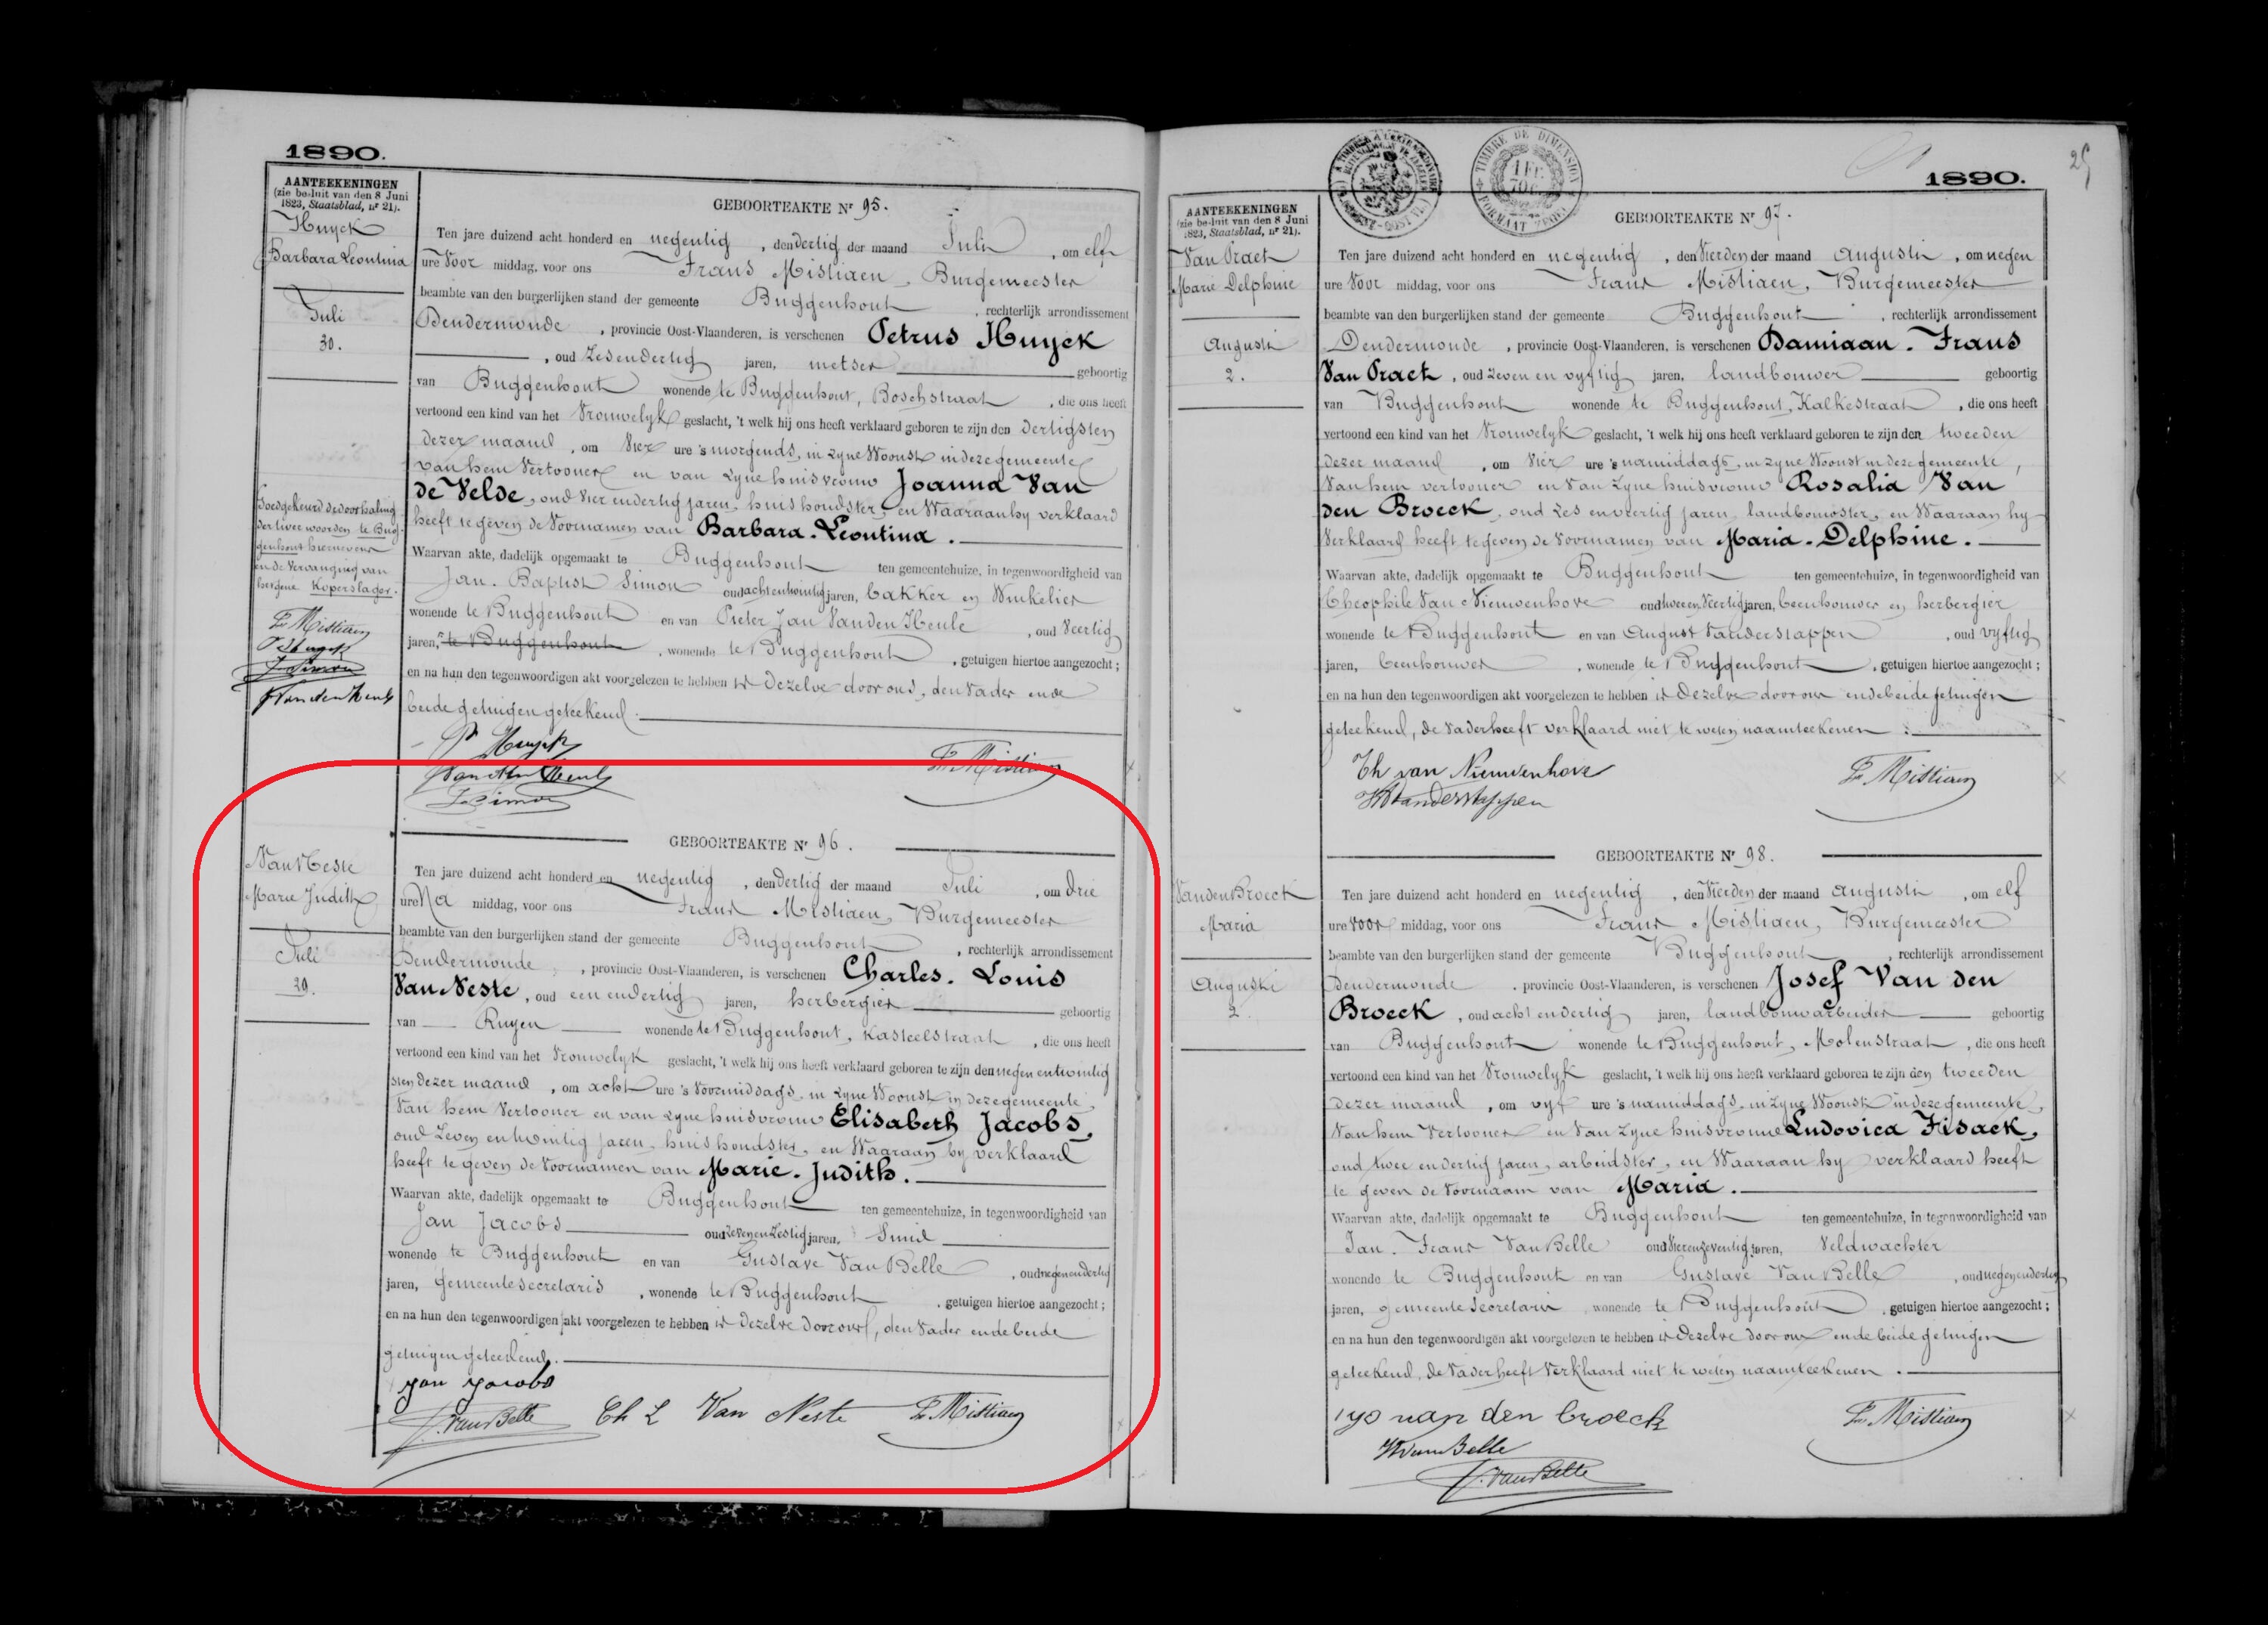 1890.
AANTEEKENINGEN
(zie besluit van den 8 Juni
1823, Staatsblad, nr 21).
Huyck
Barbara Leontina
Juli
30.
Goedgekeurd de doorhaling
der twee woorden te Bug-
genhout hiernevens
en de vervanging van
hetgene Koperslager.
Fr Mistiaen
P Huyck
J. Simon
VandenHeule
GEBOORTEAKTE Nr 95.
Ten jare duizend acht honderd en negentig, den dertig der maand Juli, om elf
ure voor middag, voor ons Frans Mistiaen, Burgemeester
beambte van den burgerlijken stand der gemeente Buggenhout, rechterlijk arrondissement
Dendermonde, provincie Oost-Vlaanderen, is verschenen Petrus Huyck
, oud zesendertig jaren, metser geboortig
van Buggenhout wonende te Buggenhout, Boschstraat, die ons heeft
vertoond een kind van het vrouwelyk geslacht, 't welk hij ons heeft verklaard geboren te zijn den dertigsten
dezer maand, om vier ure 's morgends, in zyne woonst in deze gemeente
van hem vertooner en van zyne huisvrouw Joanna Van
de Velde, oud vier en dertig jaren, huishoudster, en waaraan hy verklaard
heeft te geven de voornamen van Barbara-Leontina.
Waarvan akte, dadelijk opgemaakt te Buggenhout ten gemeentehuize, in tegenwoordigheid van
Jan-Baptist Simon oud acht en twintig jaren, bakker en winkelier
wonende te Buggenhout en van Pieter Jan Vanden Heule, oud veertig
jaren, te Buggenhout, wonende te Buggenhout, getuigen hiertoe aangezocht;
en na hun den tegenwoordigen akt voorgelezen te hebben is dezelve door ons, den vader ende
beide getuigen geteekend.
P Huyck
VandenHeule
J. Simon
Fr Mistiaen
Van Neste
Marie Judith
Juli
29.
GEBOORTEAKTE Nr 96.
Ten jare duizend acht honderd en negentig, den dertig der maand Juli, om drie
ure Na middag, voor ons Frans Mistiaen, Burgemeester
beambte van den burgerlijken stand der gemeente Buggenhout, rechterlijk arrondissement
Dendermonde, provincie Oost-Vlaanderen, is verschenen Charles-Louis
Van Neste, oud een en dertig jaren, herbergier geboortig
van Ruyen wonende te Buggenhout, Kasteelstraat, die ons heeft
vertoond een kind van het vrouwelyk geslacht, 't welk hij ons heeft verklaard geboren te zijn den negen en twintig
sten dezer maand, om acht ure 's voormiddags, in zyne woonst in deze gemeente,
van hem vertooner en van zyne huisvrouw Elisabeth Jacobs,
oud zeven en twintig jaren, huishoudster, en waaraan hy verklaard
heeft te geven de voornamen van Marie-Judith.
Waarvan akte, dadelijk opgemaakt te Buggenhout ten gemeentehuize, in tegenwoordigheid van
Jan Jacobs oud zeven en zestig jaren, Smid
wonende te Buggenhout en van Gustave Van Belle, oud negen en dertig
jaren, gemeentesecretaris, wonende te Buggenhout, getuigen hiertoe aangezocht;
en na hun den tegenwoordigen akt voorgelezen te hebben is dezelve door ons, den vader ende beide
getuigen geteekend.
Jan Jacobs
G. Van Belle Ch L Van Neste Fr Mistiaen
25
1890.
AANTEEKENINGEN
(zie besluit van den 8 Juni
1823, Staatsblad, nr 21).
Van Praet
Marie Delphine
Augusti
2.
TIMBRE DE DIMENSION
FORMAAT ZEGEL
GEBOORTEAKTE Nr 97.
Ten jare duizend acht honderd en negentig, den vierden der maand Augusti, om negen
ure voor middag, voor ons Frans Mistiaen, Burgemeester
beambte van den burgerlijken stand der gemeente Buggenhout, rechterlijk arrondissement
Dendermonde, provincie Oost-Vlaanderen, is verschenen Damiaan-Frans
Van Praet, oud zeven en vyftig jaren, landbouwer geboortig
van Buggenhout wonende te Buggenhout, Kalkestraat, die ons heeft
vertoond een kind van het vrouwelyk geslacht, 't welk hij ons heeft verklaard geboren te zijn den tweeden
dezer maand, om vier ure 's namiddags, in zyne woonst in deze gemeente,
van hem vertooner en van zyne huisvrouw Rosalia Van
den Broeck, oud zes en veertig jaren, landbouwster, en waaraan hy
verklaard heeft te geven de voornamen van Maria-Delphine.
Waarvan akte, dadelijk opgemaakt te Buggenhout ten gemeentehuize, in tegenwoordigheid van
Theophile Van Nieuwenhove oud twee en veertig jaren, beenhouwer en herbergier
wonende te Buggenhout en van August Vanderstappen, oud vyftig
jaren, beenhouwer, wonende te Buggenhout, getuigen hiertoe aangezocht;
en na hun den tegenwoordigen akt voorgelezen te hebben is dezelve door ons ende beide getuigen
geteekend, de vader heeft verklaard niet te weten naamteekenen.
Th van Nieuwenhove
Vanderstappen
Fr Mistiaen
Vanden Broeck
Maria
Augusti
2.
GEBOORTEAKTE Nr 98.
Ten jare duizend acht honderd en negentig, den vierden der maand Augusti, om elf
ure voor middag, voor ons Frans Mistiaen, Burgemeester
beambte van den burgerlijken stand der gemeente Buggenhout, rechterlijk arrondissement
Dendermonde, provincie Oost-Vlaanderen, is verschenen Josef Van den
Broeck, oud acht en dertig jaren, landbouwarbeider geboortig
van Buggenhout wonende te Buggenhout, Molenstraat, die ons heeft
vertoond een kind van het vrouwelyk geslacht, 't welk hij ons heeft verklaard geboren te zijn den tweeden
dezer maand, om vyf ure 's namiddags, in zyne woonst in deze gemeente,
van hem vertooner en van zyne huisvrouw Ludovica Fisack,
oud twee en dertig jaren, arbeidster, en waaraan hy verklaard heeft
te geven de voornaam van Maria.
Waarvan akte, dadelijk opgemaakt te Buggenhout ten gemeentehuize, in tegenwoordigheid van
Jan-Frans Van Belle oud vier en zeventig jaren, Veldwachter
wonende te Buggenhout en van Gustave Van Belle, oud negen en dertig
jaren, gemeentesecretaris wonende te Buggenhout, getuigen hiertoe aangezocht;
en na hun den tegenwoordigen akt voorgelezen te hebben is dezelve door ons ende beide getuigen
geteekend, de vader heeft verklaard niet te weten naamteekenen.
van den broeck
Van Belle
G. Van Belle
Fr Mistiaen